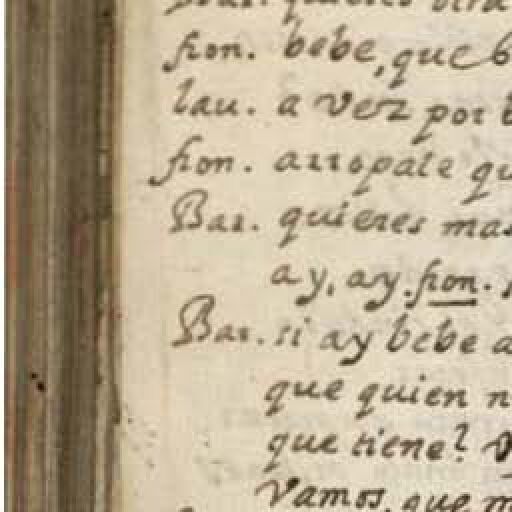 Bar. quieres otra
fion. bebe, que b
lau. a vez por b
fion. arropate qu
Bar. quieres mas
ay, ay. fion.
Bar. si ay bebe a
que quien n
que tiene?
Vamos, que m